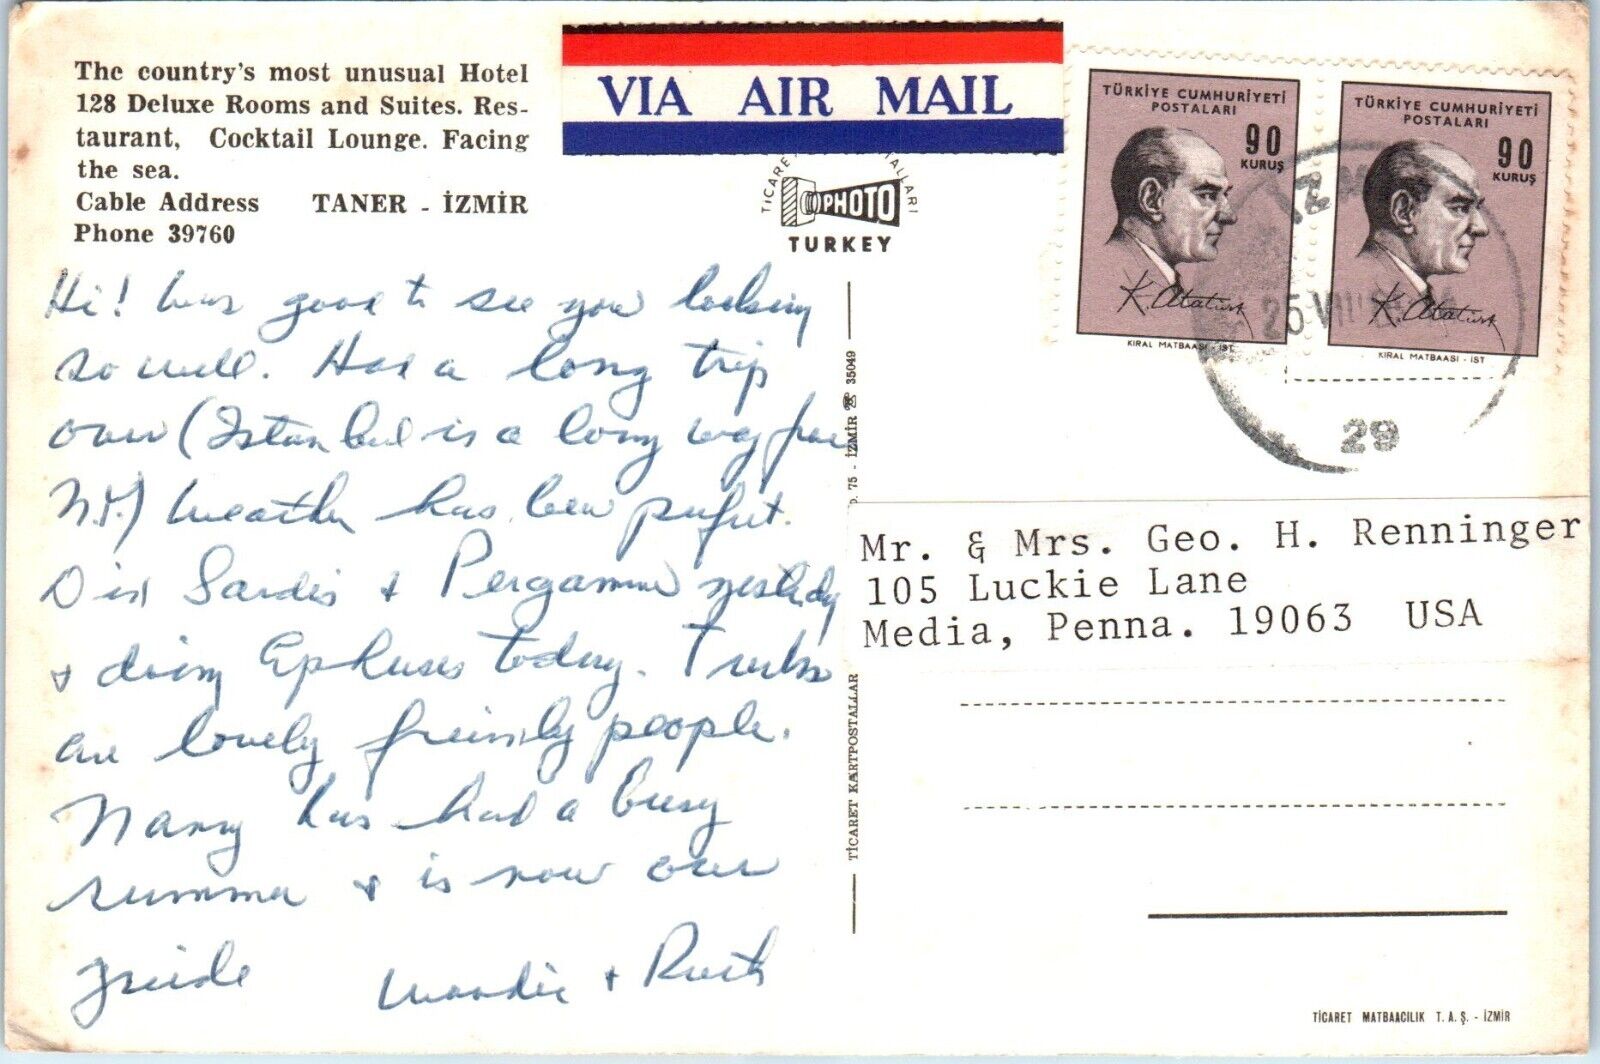 The country's most unusual Hotel
128 Deluxe Rooms and Suites. Res-
taurant, Cocktail Lounge. Facing
the sea.
Cable Address TANER - İZMİR
Phone 39760
VIA AIR MAIL
PHOTO
TURKEY
TÜRKİYE CUMHURİYETİ
POSTALARI
90
KURUŞ
K. Atatürk
KIRAL MATBAASI - İST
TÜRKİYE CUMHURİYETİ
POSTALARI
90
KURUŞ
K. Atatürk
KIRAL MATBAASI - İST
29
Hi! Was good to see you looking
so well. Had a long trip
over (Istanbul is a long way from
N.Y.) Weather has been perfect.
Did Sardis & Pergamum yesterday
& doing Ephesus today. Turks
are lovely friendly people.
Nancy has had a busy
summer & is now our
guide Woodie & Ruth
75 - İZMİR 35049
TİCARET KARTPOSTALLAR
Mr. & Mrs. Geo. H. Renninger
105 Luckie Lane
Media, Penna. 19063 USA
TİCARET MATBAACILIK T. A. Ş. - İZMİR